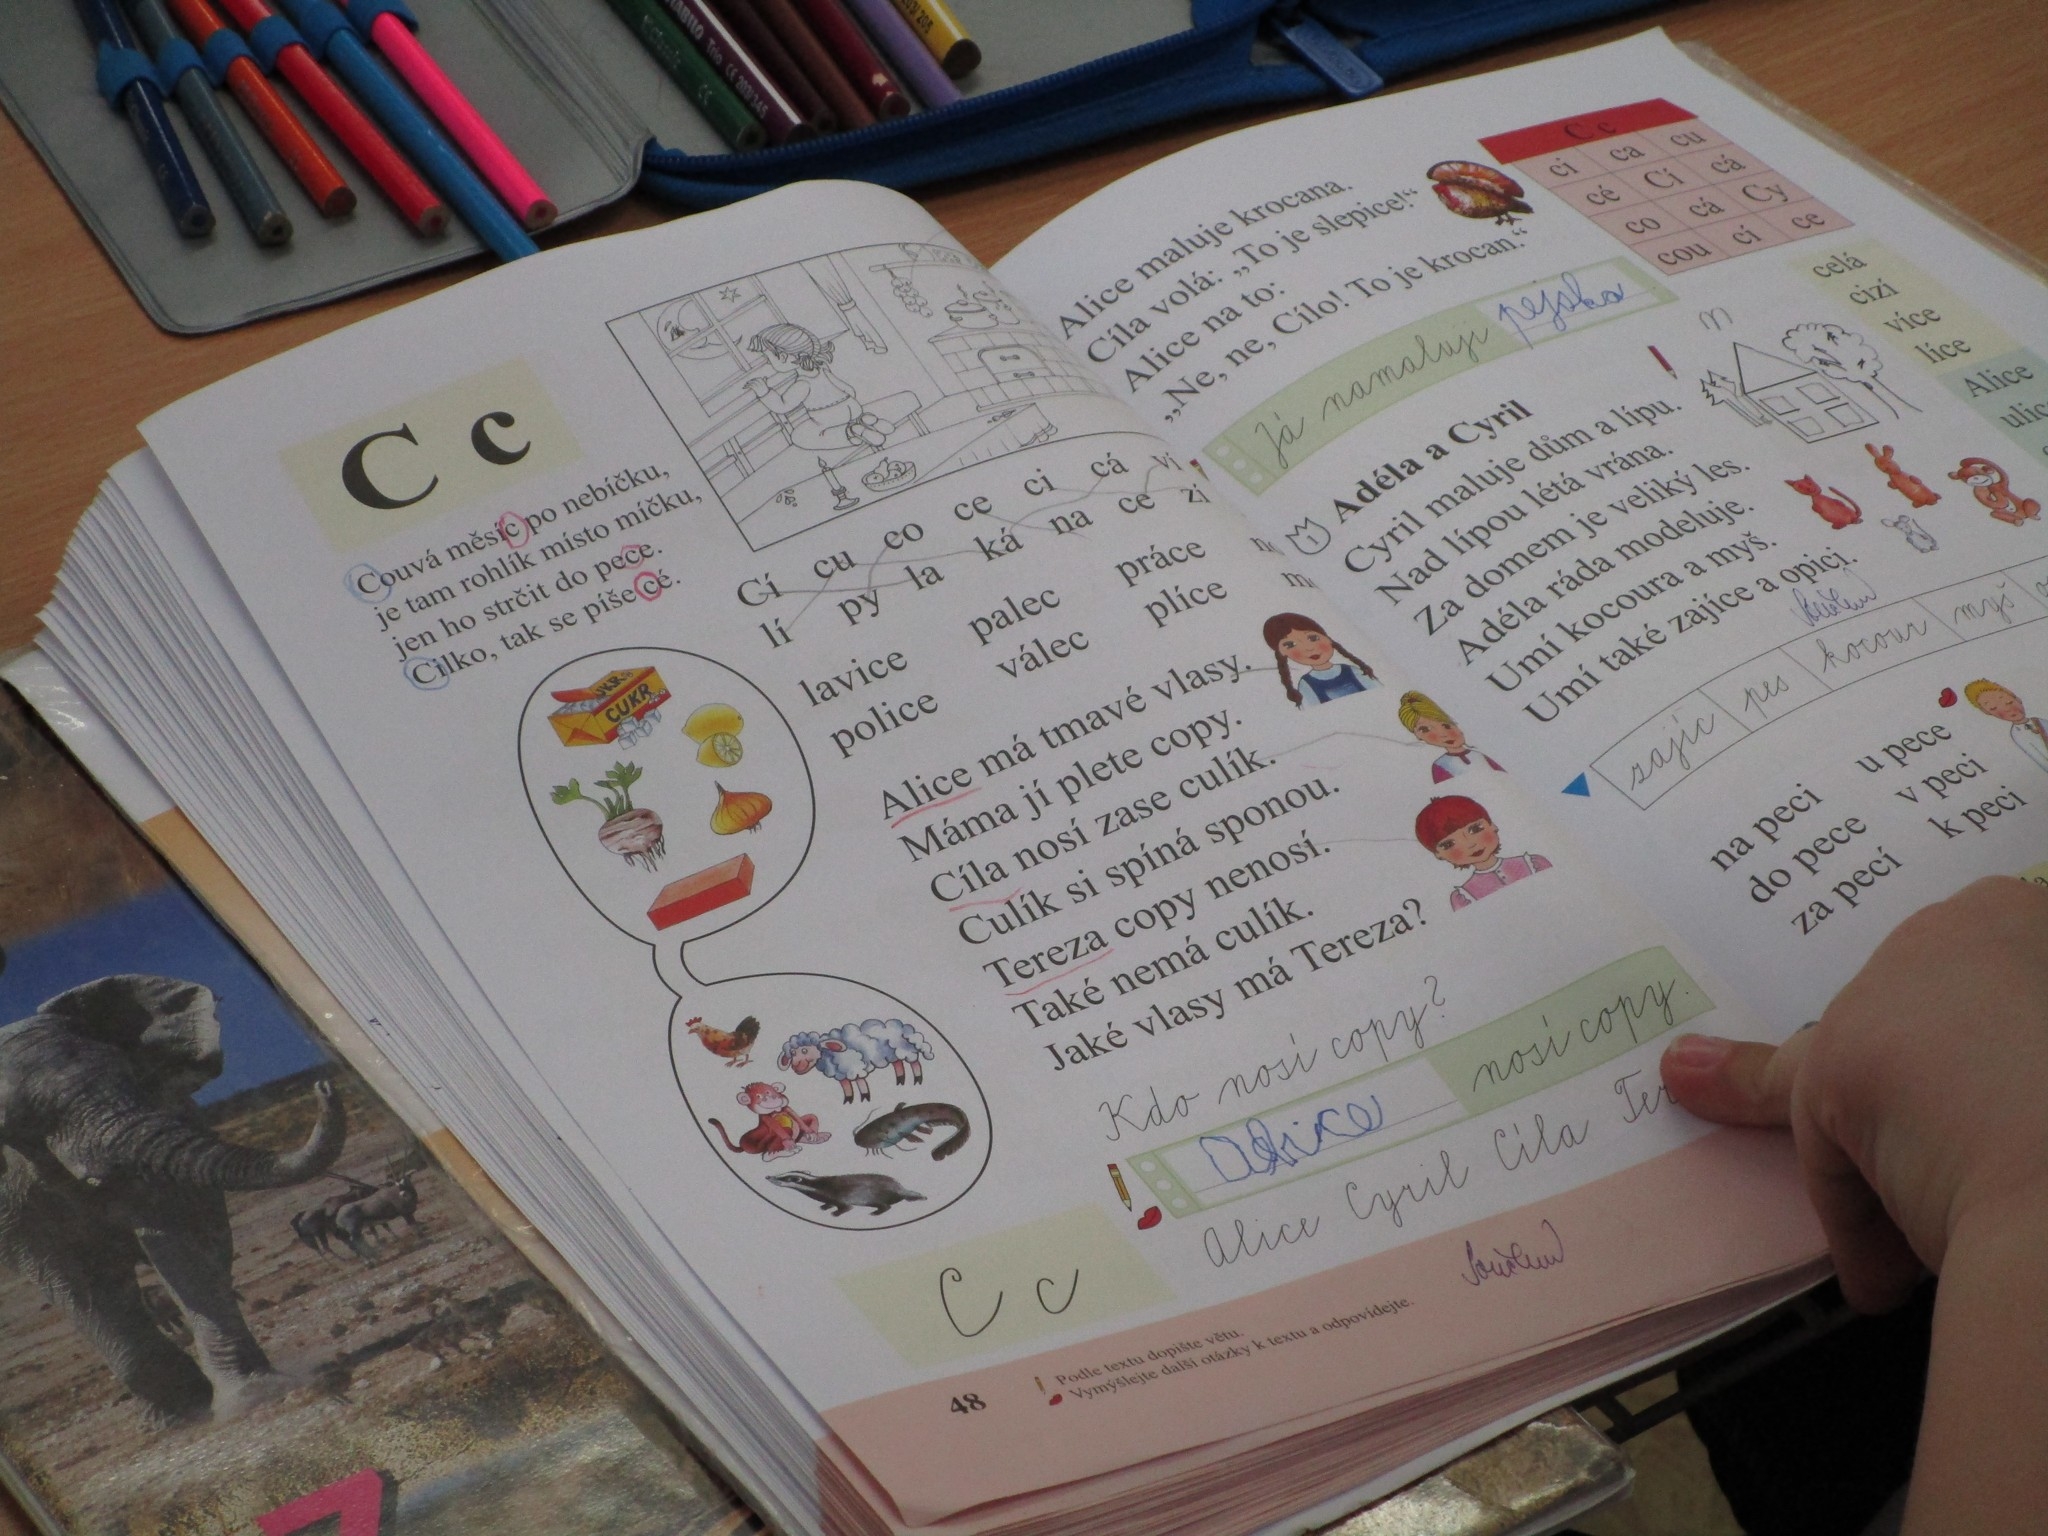 C c
Couvá měsíc po nebíčku,
je tam rohlík místo míčku,
jen ho strčit do pece.
Cilko, tak se píše cé.
CUKR
Cí cu co ce ci cá
lí py la ká na ce zi
lavice palec práce
police válec plíce
Alice má tmavé vlasy.
Máma jí plete copy.
Cíla nosí zase culík.
Culík si spíná sponou.
Tereza copy nenosí.
Také nemá culík.
Jaké vlasy má Tereza?
Kdo nosí copy?
nosí copy.
Alice Cyril Cíla Ter
C c
48
Podle textu dopište větu.
Vymýšlejte další otázky k textu a odpovídejte.
Alice maluje krocana.
Cíla volá: „To je slepice!“
Alice na to:
„Ne, ne, Cílo! To je krocan.“
Já namaluji pejska
C c
ci ca cu
cé Cí cá
co cá Cy
cou cí ce
celá
cizí
více
líce
Alice
Adéla a Cyril
Cyril maluje dům a lípu.
Nad lípou létá vrána.
Za domem je veliký les.
Adéla ráda modeluje.
Umí kocoura a myš.
Umí také zajíce a opici.
zajíc pes kocour myš
na peci u pece
do pece v peci
za pecí k peci